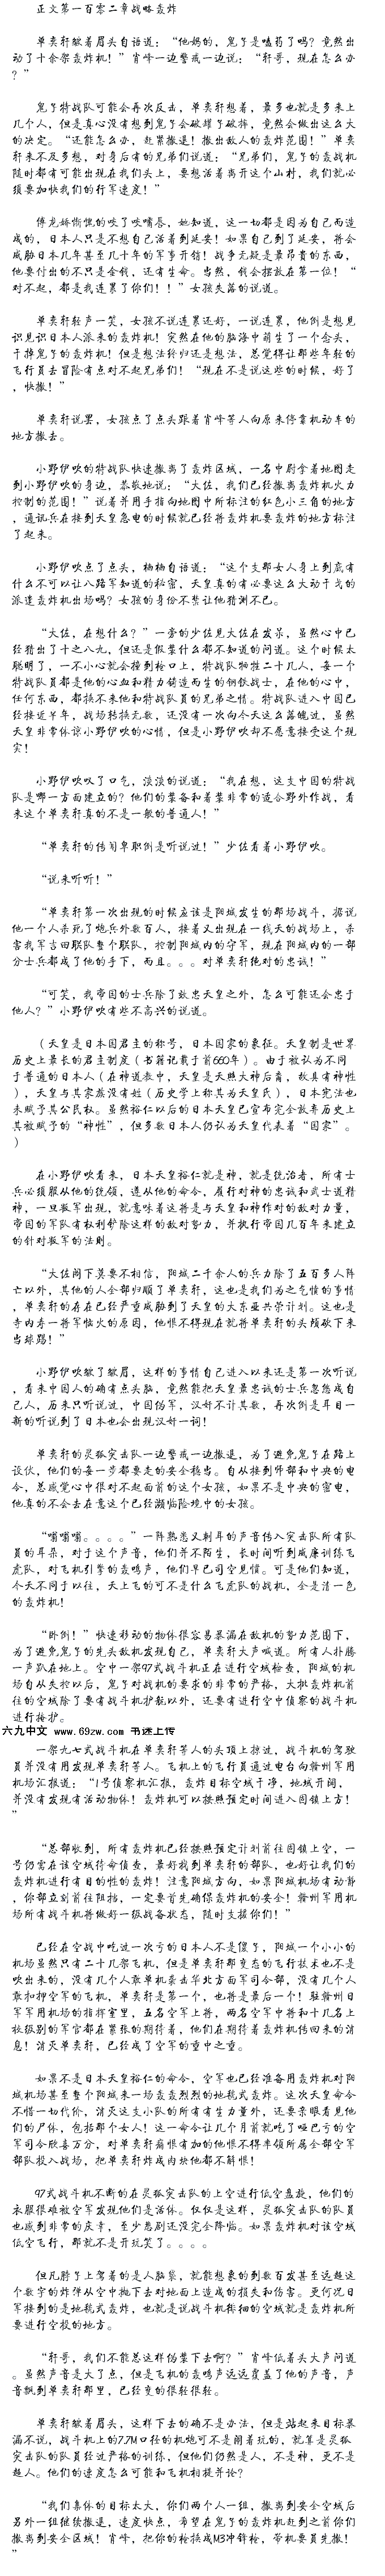 正文第一百零二章战略轰炸
单奕轩皱着眉头自语道：“他妈的，鬼子是嗑药了吗？竟然出
动了十余架轰炸机！”肖峰一边警戒一边说：“轩哥，现在怎么办
？”
鬼子特战队可能会再次反击，单奕轩想着，最多也就是多来上
几个人，但是真心没有想到鬼子会破罐子破摔，竟然会做出这么大
的决定。“还能怎么办，赶紧撤退！撤出敌人的轰炸范围！”单奕
轩来不及多想，对身后有的兄弟们说道：“兄弟们，鬼子的轰战机
随时都有可能出现在我们头上，要想活着离开这个山村，我们就必
须要加快我们的行军速度！”
成的，日本人只是不想自己活着到延安！如果自己到了延安，将会
威胁日本几年甚至几十年的军事开销！战争无疑是最昂贵的东西，
他要付出的不只是金钱，还有生命。当然，钱会摆放在第一位！“
对不起，都是我连累了你们！！”女孩失落的说道。
单奕轩轻声一笑，女孩不说连累还好，一说连累，他倒是想见
识见识日本人派来的轰炸机！突然在他的脑海中萌生了一个念头，
干掉鬼子的轰炸机！但是想法终归还是想法，总觉得让那些年轻的
飞行员去冒险有点对不起兄弟们！“现在不是说这些的时候，好了
，快撤！”
单奕轩说罢，女孩点了点头跟着肖峰等人向原来停靠机动车的
地方撤去。
小野伊吹的特战队快速撤离了轰炸区域，一名中尉拿着地图走
到小野伊吹的身边，恭敬地说：“大佐，我们已经撤离轰炸机火力
控制的范围！”说着并用手指向地图中所标注的红色小三角的地方
，通讯兵在接到天皇急电的时候就已经将轰炸机要轰炸的地方标注
了起来。
小野伊吹点了点头，喃喃自语道：“这个支那女人身上到底有
什么不可以让八路军知道的秘密，天皇真的有必要这么大动干戈的
派遣轰炸机出场吗？女孩的身份不禁让他猜测不已。
“大佐，在想什么？”一旁的少佐见大佐在发呆，虽然心中已
经猜出了十之八九，但还是假装什么都不知道的问道。这个时候太
聪明了，一不小心就会撞到枪口上，特战队牺牲二十几人，每一个
特战队员都是他的心血和精力铸造而生的钢铁战士，在他的心中，
任何东西，都换不来他和特战队员的兄弟之情。特战队进入中国已
经接近半年，战场转换无数，还没有一次向今天这么落魄过，虽然
天皇非常体谅小野伊吹的心情，但是小野伊吹却不愿意接受这个现
实！
小野伊吹叹了口气，淡淡的说道：“我在想，这支中国的特战
队是哪一方面建立的？他们的装备和着装非常的适合野外作战，看
来这个单奕轩真的不是一般的普通人！”
“单奕轩的传闻卑职倒是听说过！”少佐看着小野伊吹。
“说来听听！”
“单奕轩第一次出现的时候应该是阳城发生的那场战斗，据说
他一个人杀死了炮兵外数百人，接着又出现在一线天的战场上，杀
害我军吉田联队整个联队，控制阳城内的守军，现在阳城内的一部
分士兵都成了他的手下，而且。。。对单奕轩绝对的忠诚！”
“可笑，我帝国的士兵除了效忠天皇之外，怎么可能还会忠于
他人？”小野伊吹有些不高兴的说道。
（天皇是日本国君主的称号，日本国家的象征。天皇制是世界
历史上最长的君主制度（书籍记载于前660年）。由于被认为不同
于普通的日本人（在神道教中，天皇是天照大神后裔，故具有神性
），天皇与其家族没有姓（历史学上称其为天皇氏），日本宪法也
未赋予其公民权。虽然裕仁以后的日本天皇已宣布完全放弃历史上
其被赋予的“神性”，但多数日本人仍认为天皇代表着“国家”。
）
在小野伊吹看来，日本天皇裕仁就是神，就是统治者，所有士
兵必须服从他的统领，遵从他的命令，履行对神的忠诚和武士道精
神，一旦叛军出现，就意味着这将是与天皇和神作对的敌对力量，
帝国的军队有权利铲除这样的敌对势力，并执行帝国几百年来建立
的针对叛军的法则。
“大佐阁下莫要不相信，阳城二千余人的兵力除了五百多人阵
亡以外，其他的人全部归顺了单奕轩，这也是我们为之气愤的事情
，单奕轩的存在已经严重威胁到了天皇的大东亚共荣计划。这也是
寺内寿一将军恼火的原因，他恨不得现在就将单奕轩的头颅砍下来
当球踢！”
小野伊吹皱了皱眉，这样的事情自己进入以来还是第一次听说
，看来中国人的确有点头脑，竟然能把天皇最忠诚的士兵忽悠成自
己人，历来只听说过，中国伪军，汉奸不计其数，再次倒是耳目一
新的听说到了日本也会出现汉奸一词！
单奕轩的灵狐突击队一边警戒一边撤退，为了避免鬼子在路上
设伏，他们的每一步都要走的安全稳当。自从接到师部和中央的电
令，总感觉心中很对不起面前的这个女孩，如果不是中央的密电，
他真的不会去在意这个已经濒临险境中的女孩。
“嗡嗡嗡。。。。”一阵熟悉又刺耳的声音传入突击队所有队
员的耳朵，对于这个声音，他们并不陌生，长时间听到威廉训练飞
虎队，对飞机引擎的轰鸣声，他们早已司空见惯。可是他们知道，
今天不同于以往，天上飞的可不是什么飞虎队的战机，全是清一色
的轰炸机！
“卧倒！”快速移动的物体很容易暴漏在敌机的势力范围下，
为了避免鬼子的先头敌机发现自己，单奕轩大声喊道。所有人扑腾
一声趴在地上。空中一架97式战斗机正在进行空域检查，阳城的机
场自从失控以后，鬼子对战机的要求的非常的严格，大批轰炸机前
往的空域除了要有战斗机护航以外，还要有进行空中侦察的战斗机
进行掩护。
六九中文 www.69zw.com 书迷上传
一架九七式战斗机在单奕轩等人的头顶上掠过，战斗机的驾驶
员并没有用发现单奕轩等人。飞机上的飞行员通过电台向赣州军用
机场汇报道：“1号侦察机汇报，轰炸目标空域干净，地域开阔，
并没有发现有活动物体！轰炸机可以按照预定时间进入固镇上方！
”
“总部收到，所有轰炸机已经按照预定计划前往固镇上空，一
号仍需在该空域待命侦查，最好找到单奕轩的部队，也好让我们的
轰炸机进行有目的性的轰炸！注意阳城方向，如果阳城机场有动静
，你部立刻前往阻挡，一定要首先确保轰炸机的安全！赣州军用机
场所有战斗机将做好一级战备状态，随时支援你们！”
已经在空战中吃过一次亏的日本人不是傻子，阳城一个小小的
机场虽然只有二十几架飞机，但是单奕轩那变态的飞行技术也不是
吹出来的，没有几个人敢单机袭击华北方面军司令部，没有几个人
敢扣押空军的飞机，单奕轩是第一个，也将是最后一个！驻赣州日
军军用机场的指挥室里，五名空军上将，两名空军中将和十几名上
校级别的军官都在紧张的期待着，他们在期待着轰炸机传回来的消
息！消灭单奕轩，已经成了空军的重中之重。
如果不是日本天皇裕仁的命令，空军也已经准备用轰炸机对阳
城机场甚至整个阳城来一场轰轰烈烈的地毯式轰炸。这次天皇命令
不惜一切代价，消灭这支小队的所有有生力量外，还要亲眼看见他
们的尸体，包括那个女人！这一命令让几个月前就吃了哑巴亏的空
军司令欣喜万分，对单奕轩痛恨有加的他恨不得率领所属全部空军
部队投入战场，把单奕轩炸成肉块他都不解恨！
97式战斗机不断的在灵狐突击队的上空进行低空盘旋，他们的
衣服很难被空军发现他们是活体。仅仅是这样，灵狐突击队的队员
也感到非常的庆幸，至少悲剧还没完全降临。如果轰炸机对该空域
低空飞行，那就不是开玩笑了。。。。
但凡脖子上驾着的是人脑袋，就能想象的到数百发甚至远超这
个数字的炸弹从空中抛下去对地面上造成的损失和伤害。更何况日
军接到的是地毯式轰炸，也就是说战斗机徘徊的空域就是轰炸机所
要进行空投的地方。
“轩哥，我们不能总这样伪装下去啊？”肖峰低着头大声问道
。虽然声音是大了点，但是飞机的轰鸣声远远覆盖了他的声音，声
音飘到单奕轩那里，已经变的很轻很轻。
单奕轩皱着眉头，这样下去的确不是办法，但是站起来目标暴
漏不说，战斗机上的7.7M口径的机炮可不是闹着玩的，就算是灵狐
突击队的队员经过严格的训练，但他们仍然是人，不是神，更不是
超人。他们的速度怎么可能和飞机相提并论？
“我们集体的目标太大，你们两个人一组，撤离到安全空域后
另外一组继续撤退，速度快点，希望在鬼子的轰炸机赶到之前你们
撤离到安全区域！肖峰，把你的枪换成M3冲锋枪，带机要员先撤！
”